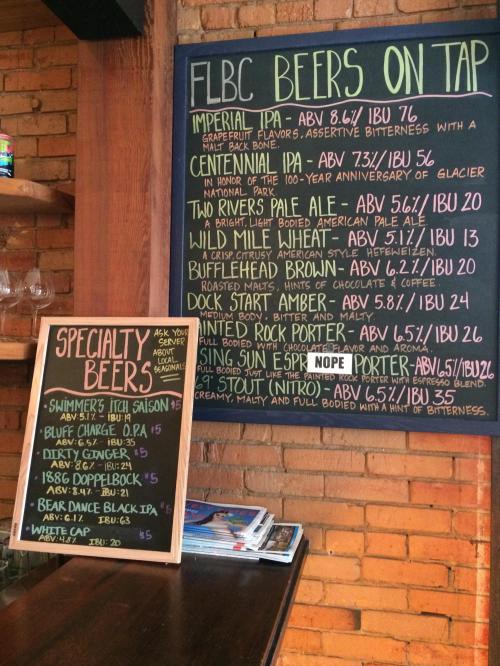 FLBC BEERS ON TAP
IMPERIAL IPA - ABV 8.6%/ IBU 76
GRAPEFRUIT FLAVORS, ASSERTIVE BITTERNESS WITH A
MALT BACK BONE.
CENTENNIAL IPA - ABV 7.3%/ IBU 56
IN HONOR OF THE 100-YEAR ANNIVERSARY OF GLACIER
NATIONAL PARK.
TWO RIVERS PALE ALE - ABV 5.6%/ IBU 20
A BRIGHT, LIGHT BODIED AMERICAN PALE ALE
WILD MILE WHEAT - ABV 5.1%/ IBU 13
A CRISP, CITRUSY AMERICAN STYLE HEFEWEIZEN.
BUFFLEHEAD BROWN - ABV 6.2%/ IBU 20
ROASTED MALTS, HINTS OF CHOCOLATE & COFFEE.
DOCK START AMBER - ABV 5.8%/ IBU 24
MEDIUM BODY, BITTER AND MALTY.
AINTED ROCK PORTER - ABV 6.5%/ IBU 26
FULL BODIED WITH CHOCOLATE FLAVOR AND AROMA.
SING SUN ESPR NOPE PORTER - ABV 6.5%/ IBU 26
FULL BODIED JUST LIKE THE PAINTED ROCK PORTER WITH ESPRESSO BLEND.
69° STOUT (NITRO) - ABV 6.5%/ IBU 35
CREAMY, MALTY AND FULL BODIED WITH A HINT OF BITTERNESS.
SPECIALTY
BEERS
ASK YOUR
SERVER
ABOUT
LOCAL
SEASONALS
• SWIMMER'S ITCH SAISON $5
ABV: 5.1% - IBU: 19
• BLUFF CHARGE O.P.A $5
ABV: 6.5% - IBU: 35
• DIRTY GINGER $5
ABV: 8.6% - IBU: 24
• 1886 DOPPELBOCK $5
ABV: 8.4% - IBU: 21
• BEAR DANCE BLACK IPA $5
ABV: 6.1% IBU: 63
• WHITE CAP $5
ABV: 4.8% IBU: 20